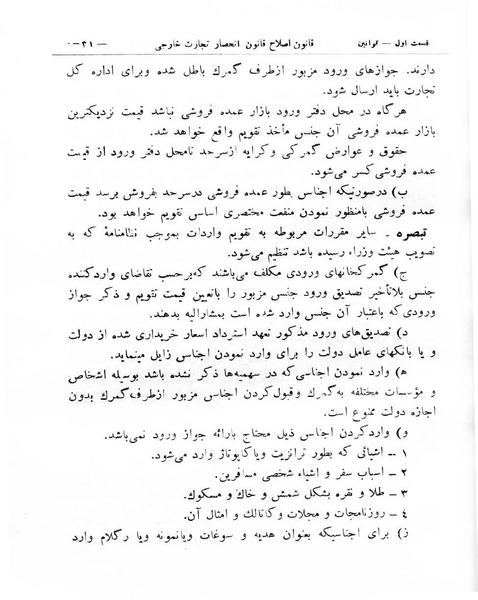 قسمت اول — قوانین قانون اصلاح قانون انحصار تجارت خارجی — ۳۱-۰
دارند. جوازهای ورود مزبور ازطرف گمرك باطل شده وبرای اداره کل
تجارت باید ارسال شود.
هرگاه در محل دفتر ورود بازار عمده فروشی نباشد قیمت نزدیکترین
بازار عمده فروشی آن جنس مأخذ تقویم واقع خواهد شد.
حقوق و عوارض گمرکی وکرایه ازسرحد تامحل دفتر ورود از قیمت
عمده فروشی کسر می‌شود.
ب) درصورتیکه اجناس بطور عمده فروشی درسرحد بفروش برسد قیمت
عمده فروشی بامنظور نمودن منفعت مختصری اساس تقویم خواهد بود.
تبصره ـ سایر مقررات مربوطه به تقویم واردات بموجب نظامنامهٔ که به
تصویب هیئت وزراء رسیده باشد تنظیم می‌شود.
ج) گمرکخانهای ورودی مکلف می‌باشند که‌برحسب تقاضای واردکننده
جنس بلاتأخیر تصدیق ورود جنس مزبور را باتعین قیمت تقویم و ذکر جواز
ورودی که باعتبار آن جنس وارد شده است بمشارالیه بدهند.
د) تصدیق‌های ورود مذکور تعهد استرداد اسعار خریداری شده از دولت
و یا بانکهای عامل دولت را برای وارد نمودن اجناس زایل مینماید.
ه) وارد نمودن اجناسی‌که در سهمیه‌ها ذکر نشده باشد بوسیله اشخاص
و مؤسسات مختلفه به‌گمرك وقبول‌کردن اجناس مزبور ازطرف‌گمرك بدون
اجازه دولت ممنوع است.
و) واردکردن اجناس ذیل محتاج بارائه جواز ورود نمی‌باشد.
۱ ــ اشیائی که بطور ترانزیت ویاکابوتاژ وارد می‌شود.
۲ ــ اسباب سفر و اشیاء شخصی مسافرین.
۳ ـ طلا و نقره بشکل شمش و خاك و مسکوك.
٤ ــ روزنامجات و مجلات وکاتالك و امثال آن.
ز) برای اجناسیکه بعنوان هدیه و سوغات ویانمونه ویا رکلام وارد